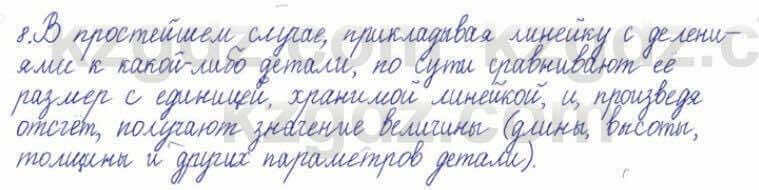 8. В простейшем случае, прикладывая линейку с делени-
ями к какой-либо детали, по сути сравнивают её
размер с единицей, хранимой линейкой, и, произведя
отсчет, получают значение величины (длины, высоты,
толщины и других параметров детали).